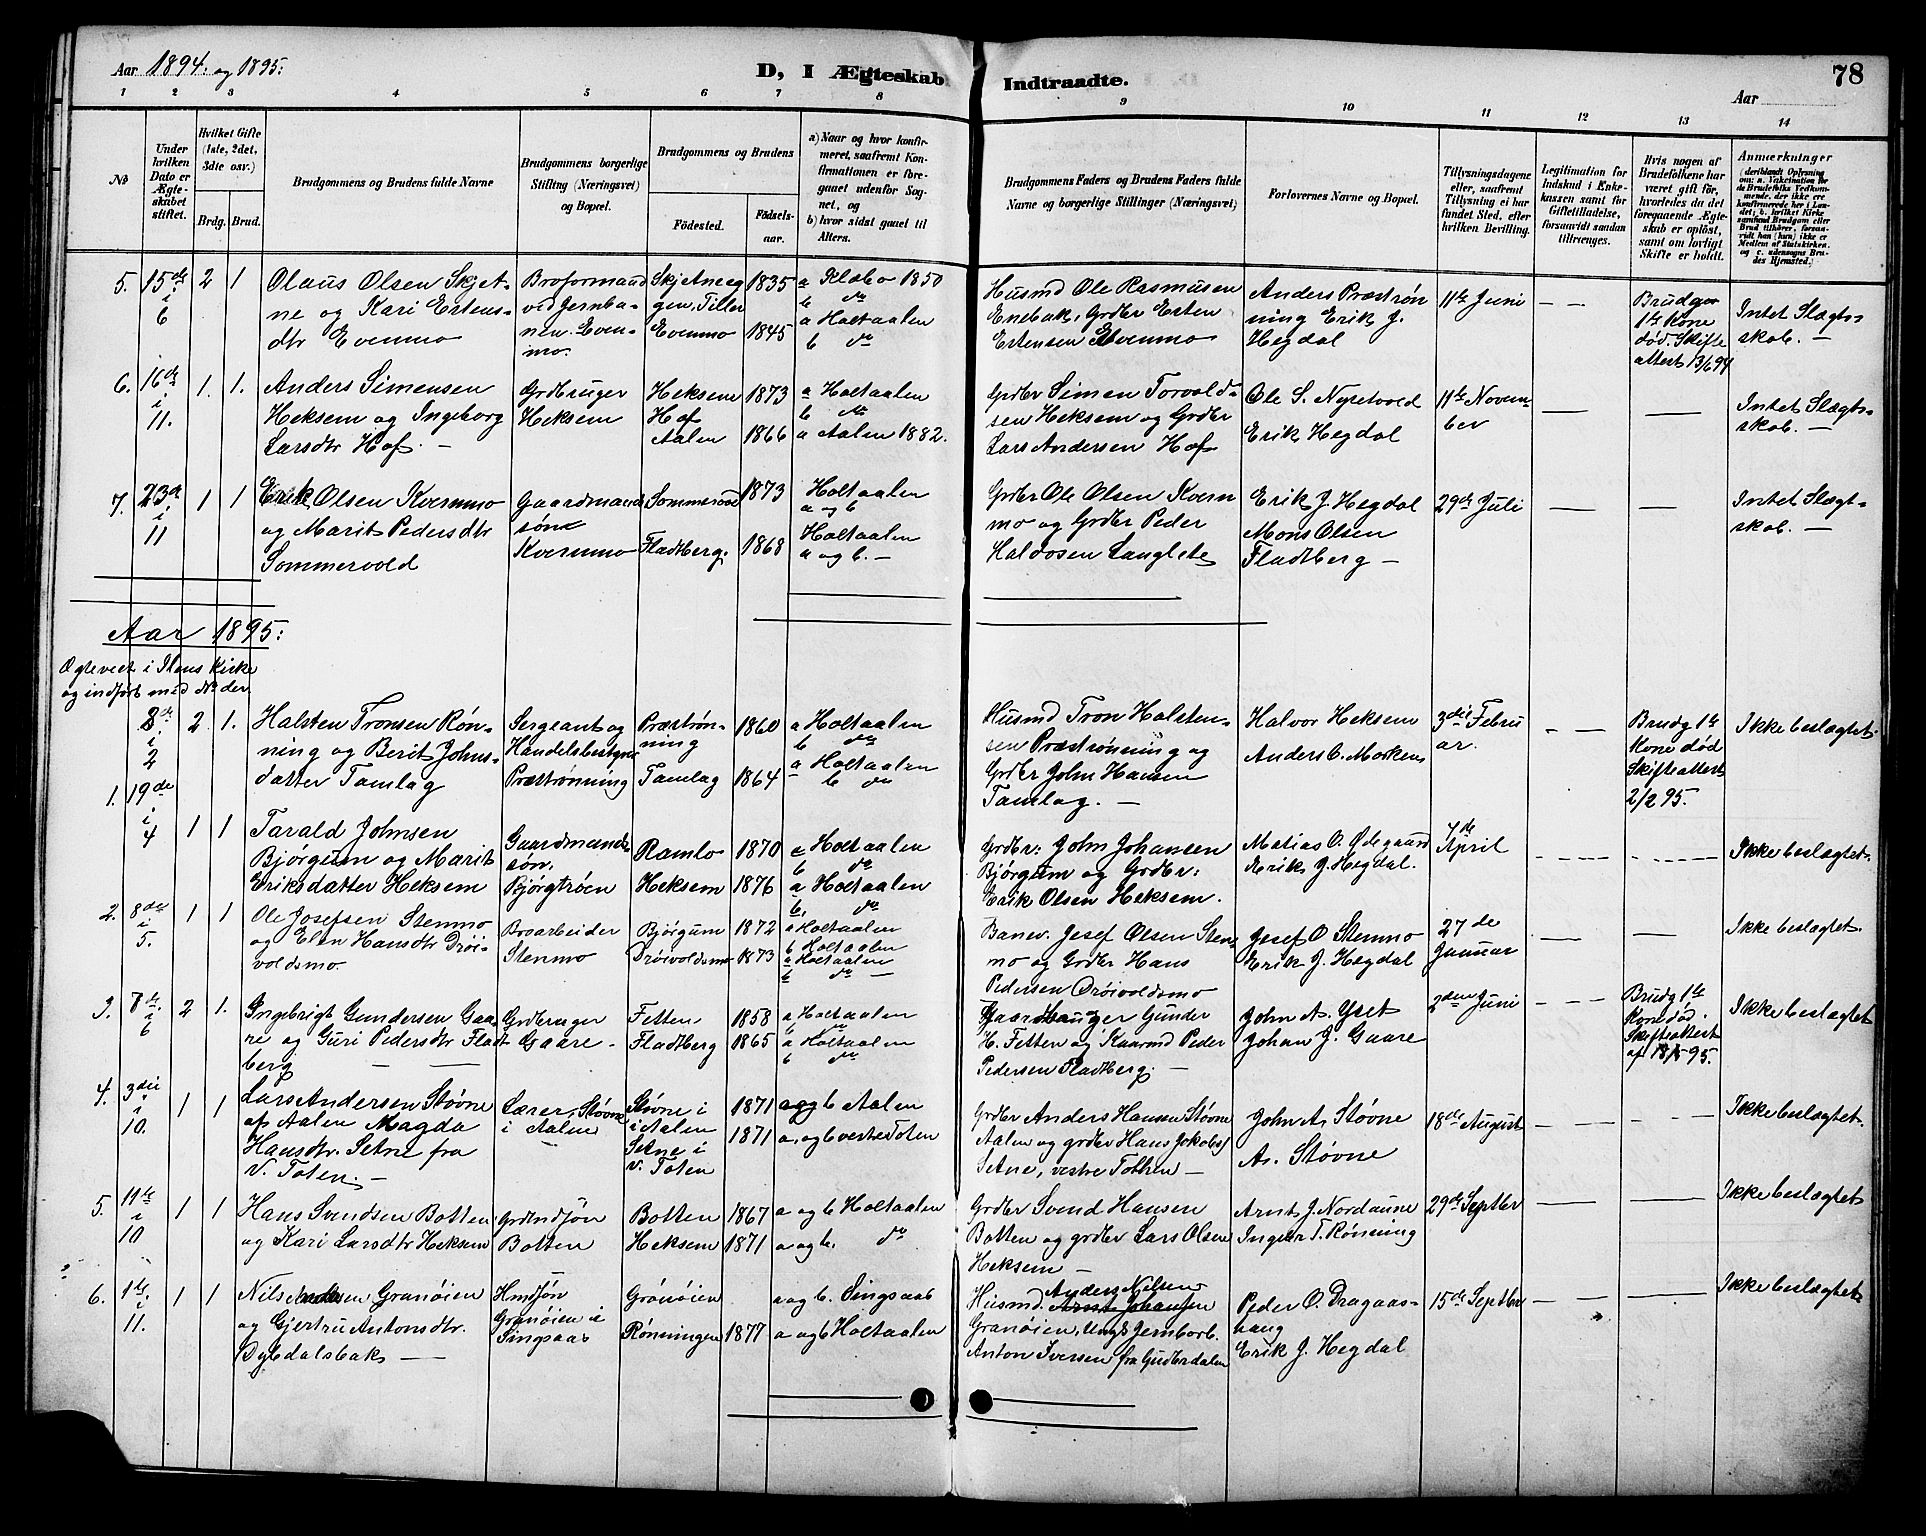 Aar 1894. og 1895:
D, I Ægteskab Indtraadte.
78
Aar
1 2 3 4 5 6 7 8 9 10 11 12 13 14
No
Under hvilken Dato er Ægteskabet stiftet.
Hvilket Gifte (1ste, 2det, 3die osv.)
Brdg. Brud.
Brudgommens og Brudens fulde Navne
Brudgommens borgerlige Stilling (Næringsvei) og Bopæl.
Brudgommens og Brudens
Födested. Födselsaar.
a) Naar og hvor konfirmeret, saafremt Konfirmationen er foregaaet udenfor Sognet, og
b) hvor sidst gaaet til Alters.
Brudgommens Faders og Brudens Faders fulde Navne og borgerlige Stillinger (Næringsvei)
Forlovernes Navne og Bopæl.
Tillysningsdagene eller, saafremt Tillysning ei har fundet Sted, efter hvilken Bevilling.
Legitimation for Indskud i Enkekassen samt for Giftetilladelse, forsaavidt saadan tiltrænges.
Hvis nogen af Brudefolkene har været gift før, hvorledes da det foregaaende Ægteskab er oplöst, samt om lovligt Skifte er holdt.
Anmærkninger
5. 15de i 6 2 1
Olaus Olsen Skjetne og Kari Estensdtr Evenmo
Broformand ved Jernbanen. Evenmo.
Evenmo
1835 1845
a Klæbo 1850
b do
a Holtaalen
b do
Husmd Ole Rasmusen
Enebak, Grdbr Esten
Estensen Evenmo
Anders Præstrønning Erik J. Hegdal
11te Juni
Brudgm 1te Kone død. Skifteattest 13/6 94
Intet Slægtskab. –
6. 16de i 11. 1. 1.
Anders Simensen
Heksem og Ingeborg
Larsdtr Hof. –
Grdbruger
Heksem
Heksem
Hof
Aalen
1873 1866
a Holtaalen
b do
a Aalen 1882.
Grdbr Simen Torvaldsen Heksem og Grdbr
Lars Andersen Hof
Ole S. Nyretvold
Erik Hegdal
11te November
Intet Slægtskab. –
7. 23de i 11 1 1
Erik Olsen Kvernmo
og Marit Pedersdtr
Sommervold
Gaardmandssøn
Kvernmo
Sommervold
Fladtberg.
1873 1868
Holtaalen
a og b
Holtaalen
a og b. –
Grdbr Ole Olsen Kvernmo og Grdbr Peder
Haldosen Langlete
Erik J. Hegdal
Mons Olsen
Fladtberg –
29de Juli
Intet Slægtskab. –
Aar 1895:
Ægteviet i Ilens Kirke
og indført med No der.
3de i 2 2 1.
Halsten Tronsen Rønning og Berit Johnsdatter Tamlag
Sergeant og
Handelsbestyrer
Præstrønning
Præstrønning
Tamlag
1860 1864
a Holtaalen
b do
a Holtaalen
b do
Husmd Tron Halstensen Præstrønning og
Grdbr John Hansen
Tamlag. –
Halvor Heksem
Anders C. Morken
3die Februar.
Brudg 1te Kone død Skifteattest 2/2 95.
Ikke beslægtet.
1. 19de i 4 1 1
Tarald Johnsen
Bjørgum og Marit
Eriksdatter Heksem
Gaardmandssøn.
Bjørgtrøen
Ramlo
Heksem
1870 1876
a Holtaalen
b do
a Holtaalen
b. do
Grdbr: John Johansen
Bjørgum og Grdbr:
Erik Olsen Heksem.
Matias O. Ødegaard
Erik J. Hegdal.
7de April
Ikke beslægtet.
2. 8de i 5. 1 1
Ole Josefsen Stenmo
og Elen Hansdtr Drøivoldsmo.
Broarbeider
Stenmo
Bjørgum
Drøivoldsmo
1872 1873
a Holtaalen
b Holtaalen
a Holtaalen
b do
Banev. Josef Olsen Stenmo og Grdbr Hans
Pedersen Drøivoldsmo
Josef O Stenmo
Erik J. Hegdal
27de Januar
Ikke beslægtet.
3. 7de i 6 2 1.
Ingebrigt Gundersen Gaare og Guri Pedersdtr Fladtberg
Grdbruger
Gaare –
Fetten
Fladtberg
1858 1865
a Holtaalen
b do
a Holtaalen
b do
Gaardbruger Gunder
H. Fetten og Kaarmd Peder
Pedersen Fladtberg. –
John A. Yset
Johan J. Gaare
2den Juni
Brudg 1te Kone død. Skifteattest af 18/5 95.
Ikke beslægtet
4. 3die i 10. 1 1
Lars Andersen Støvne
af Aalen Magda
Hansdtr. Setne fra
V. Toten. –
Lærer, Støvne
i Aalen
Støvne i
i Aalen
Setne i
V. Toten
1871 1871
a og b Aalen
a. og b vestre Toten
Grdbr Anders Hansen Støvne
Aalen og grdbr Hans Jakobs
Setne, vestre Tothen –
John A. Støvne
A. Støvne
18de August
Ikke beslægtet.
5. 11te i 10 1 1
Hans Svendsen Botten
og Kari Larsdtr Heksem
Botten
Botten
Heksem
1867 1871
a og b Holtaalen
a og b. do
Grdbr Svend Hansen
Botten og grdbr Lars Olsen
Heksem –
Arnt J. Nordaune
Ingebr T. Rønning
29de Septbr
Ikke beslægtet
6. 1te i 11. 1 1
Nils Andersen Granøien
og Gjertru Antonsdtr.
Dybdalsbak –
Granøien i
Singsaas
Grønøien
Rønningen
1877
a og b. Singsaas
a og b Holtaalen
Anders Nilsen
Husmd. Arnt Johansen
Granøien, Ungk Jernbarb.
Anton Iversen fra Gudbrdalen
Peder O. Dragaashaug
Erik J. Hegdal
15de Septbr
Ikke beslægtet